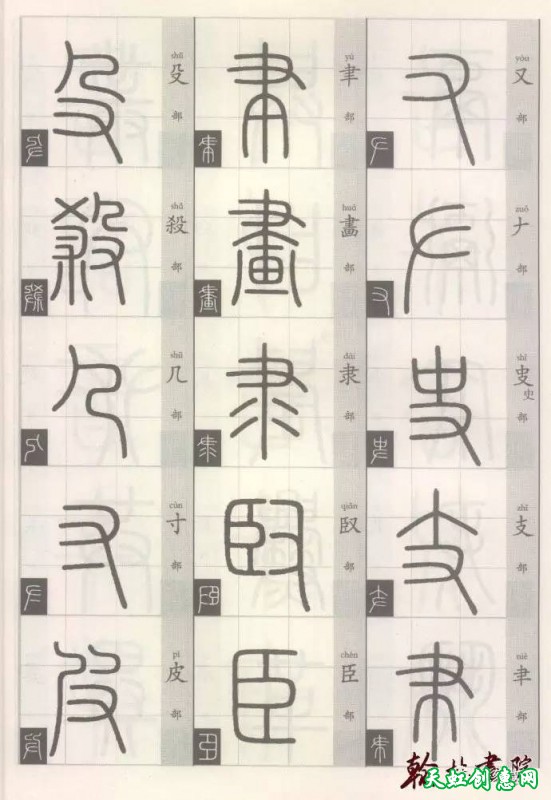 yòu
又
部
zuǒ
𠂇
部
shǐ
史
部
zhī
支
部
niè
𦘒
部
yù
聿
部
huà
畫
部
dài
隶
部
qiān
臤
部
chén
臣
部
shū
殳
部
shā
殺
部
shū
几
部
cùn
寸
部
pí
皮
部
天虹创意网